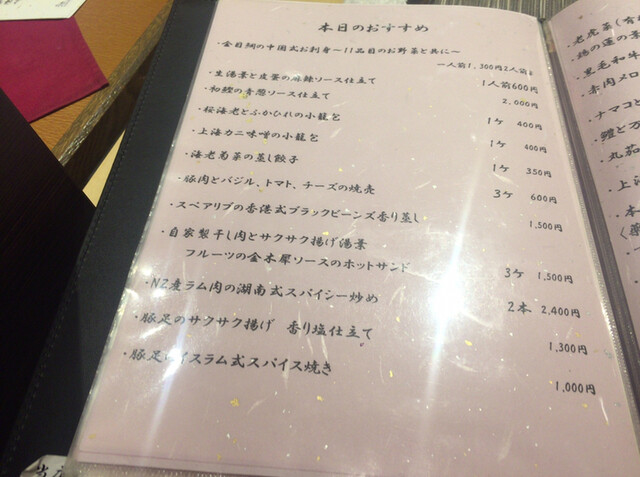 本日のおすすめ
・金目鯛の中国式お刺身～11品目のお野菜と共に～
一人前1,300円2人前
・生湯葉と皮蛋の麻辣ソース仕立て 1人前600円
・和鰹の青葱ソース仕立て 2,000円
・桜海老とふかひれの小籠包 1ケ 400円
・上海カニ味噌の小籠包 1ケ 400円
・海老菊菜の蒸し餃子 1ケ 350円
・豚肉とバジル、トマト、チーズの焼売 3ケ 600円
・スペアリブの香港式ブラックビーンズ香り蒸し 1,500円
・自家製干し肉とサクサク揚げ湯葉
フルーツの金木犀ソースのホットサンド 3ケ 1,500円
・NZ産ラム肉の湖南式スパイシー炒め 2本 2,400円
・豚足のサクサク揚げ 香り塩仕立て 1,300円
・豚足のイスラム式スパイス焼き 1,000円
・老虎菜(有
・黒毛和牛
・赤肉メロ
・ナマコと
・丸茄
・上海
・本